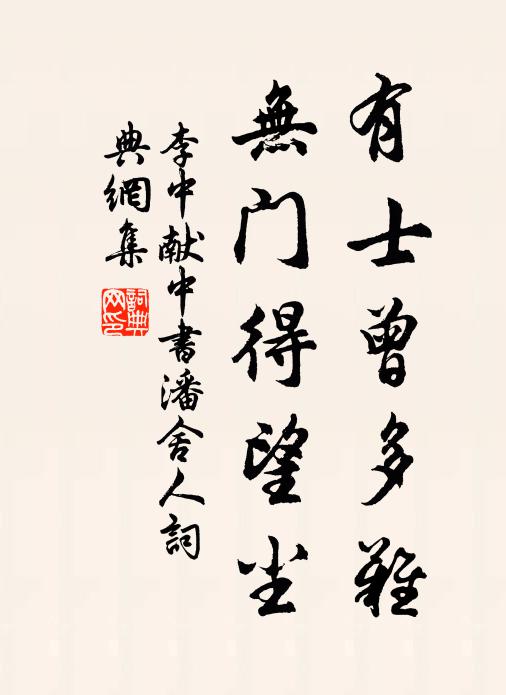 有士曾多難
無門得望尘
李中献中書潘舍人詞
典網集
詞典網印